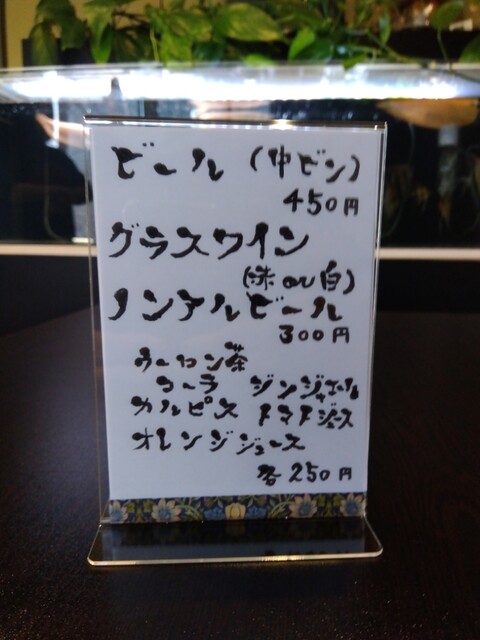 ビール (中ビン)
450円
グラスワイン
(赤or白)
ノンアルビール
300円
ウーロン茶
コーラ ジンジャエール
カルピス トマトジュース
オレンジジュース
各250円